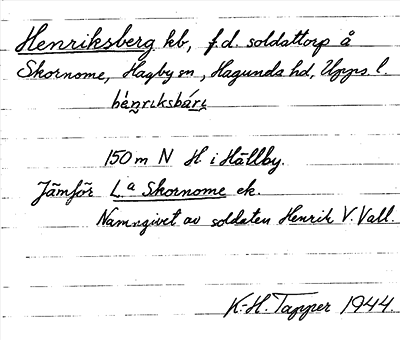 Henriksberg kb, f.d. soldattorp å
Skornome, Hagby sn, Hagunda hd, Upps. l.
150 m N H i Hällby.
Jämför La Skornome ek.
Namngivet av soldaten Henrik V. Vall.
K.-H. Tapper 1944.